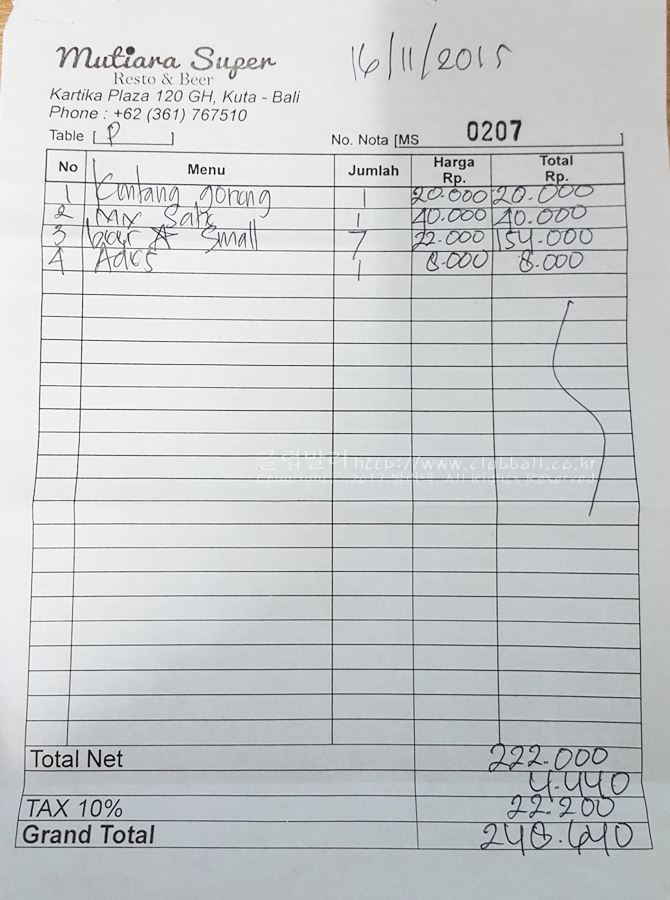 Mutiara Super
16/11/2015
Resto & Beer
Kartika Plaza 120 GH, Kuta - Bali
Phone : +62 (361) 767510
Table [ P ]
No. Nota [MS 0207 ]
No Menu Jumlah Harga Rp. Total Rp.
1 kentang goreng 1 20.000 20.000
2 Mix Sate 1 40.000 40.000
3 beer Small 7 22.000 154.000
4 1 8.000 8.000
클럽발리 http://www.clubbali.co.kr
All Rights Reserved
Total Net 222.000
4.440
TAX 10% 22.200
Grand Total 248.640